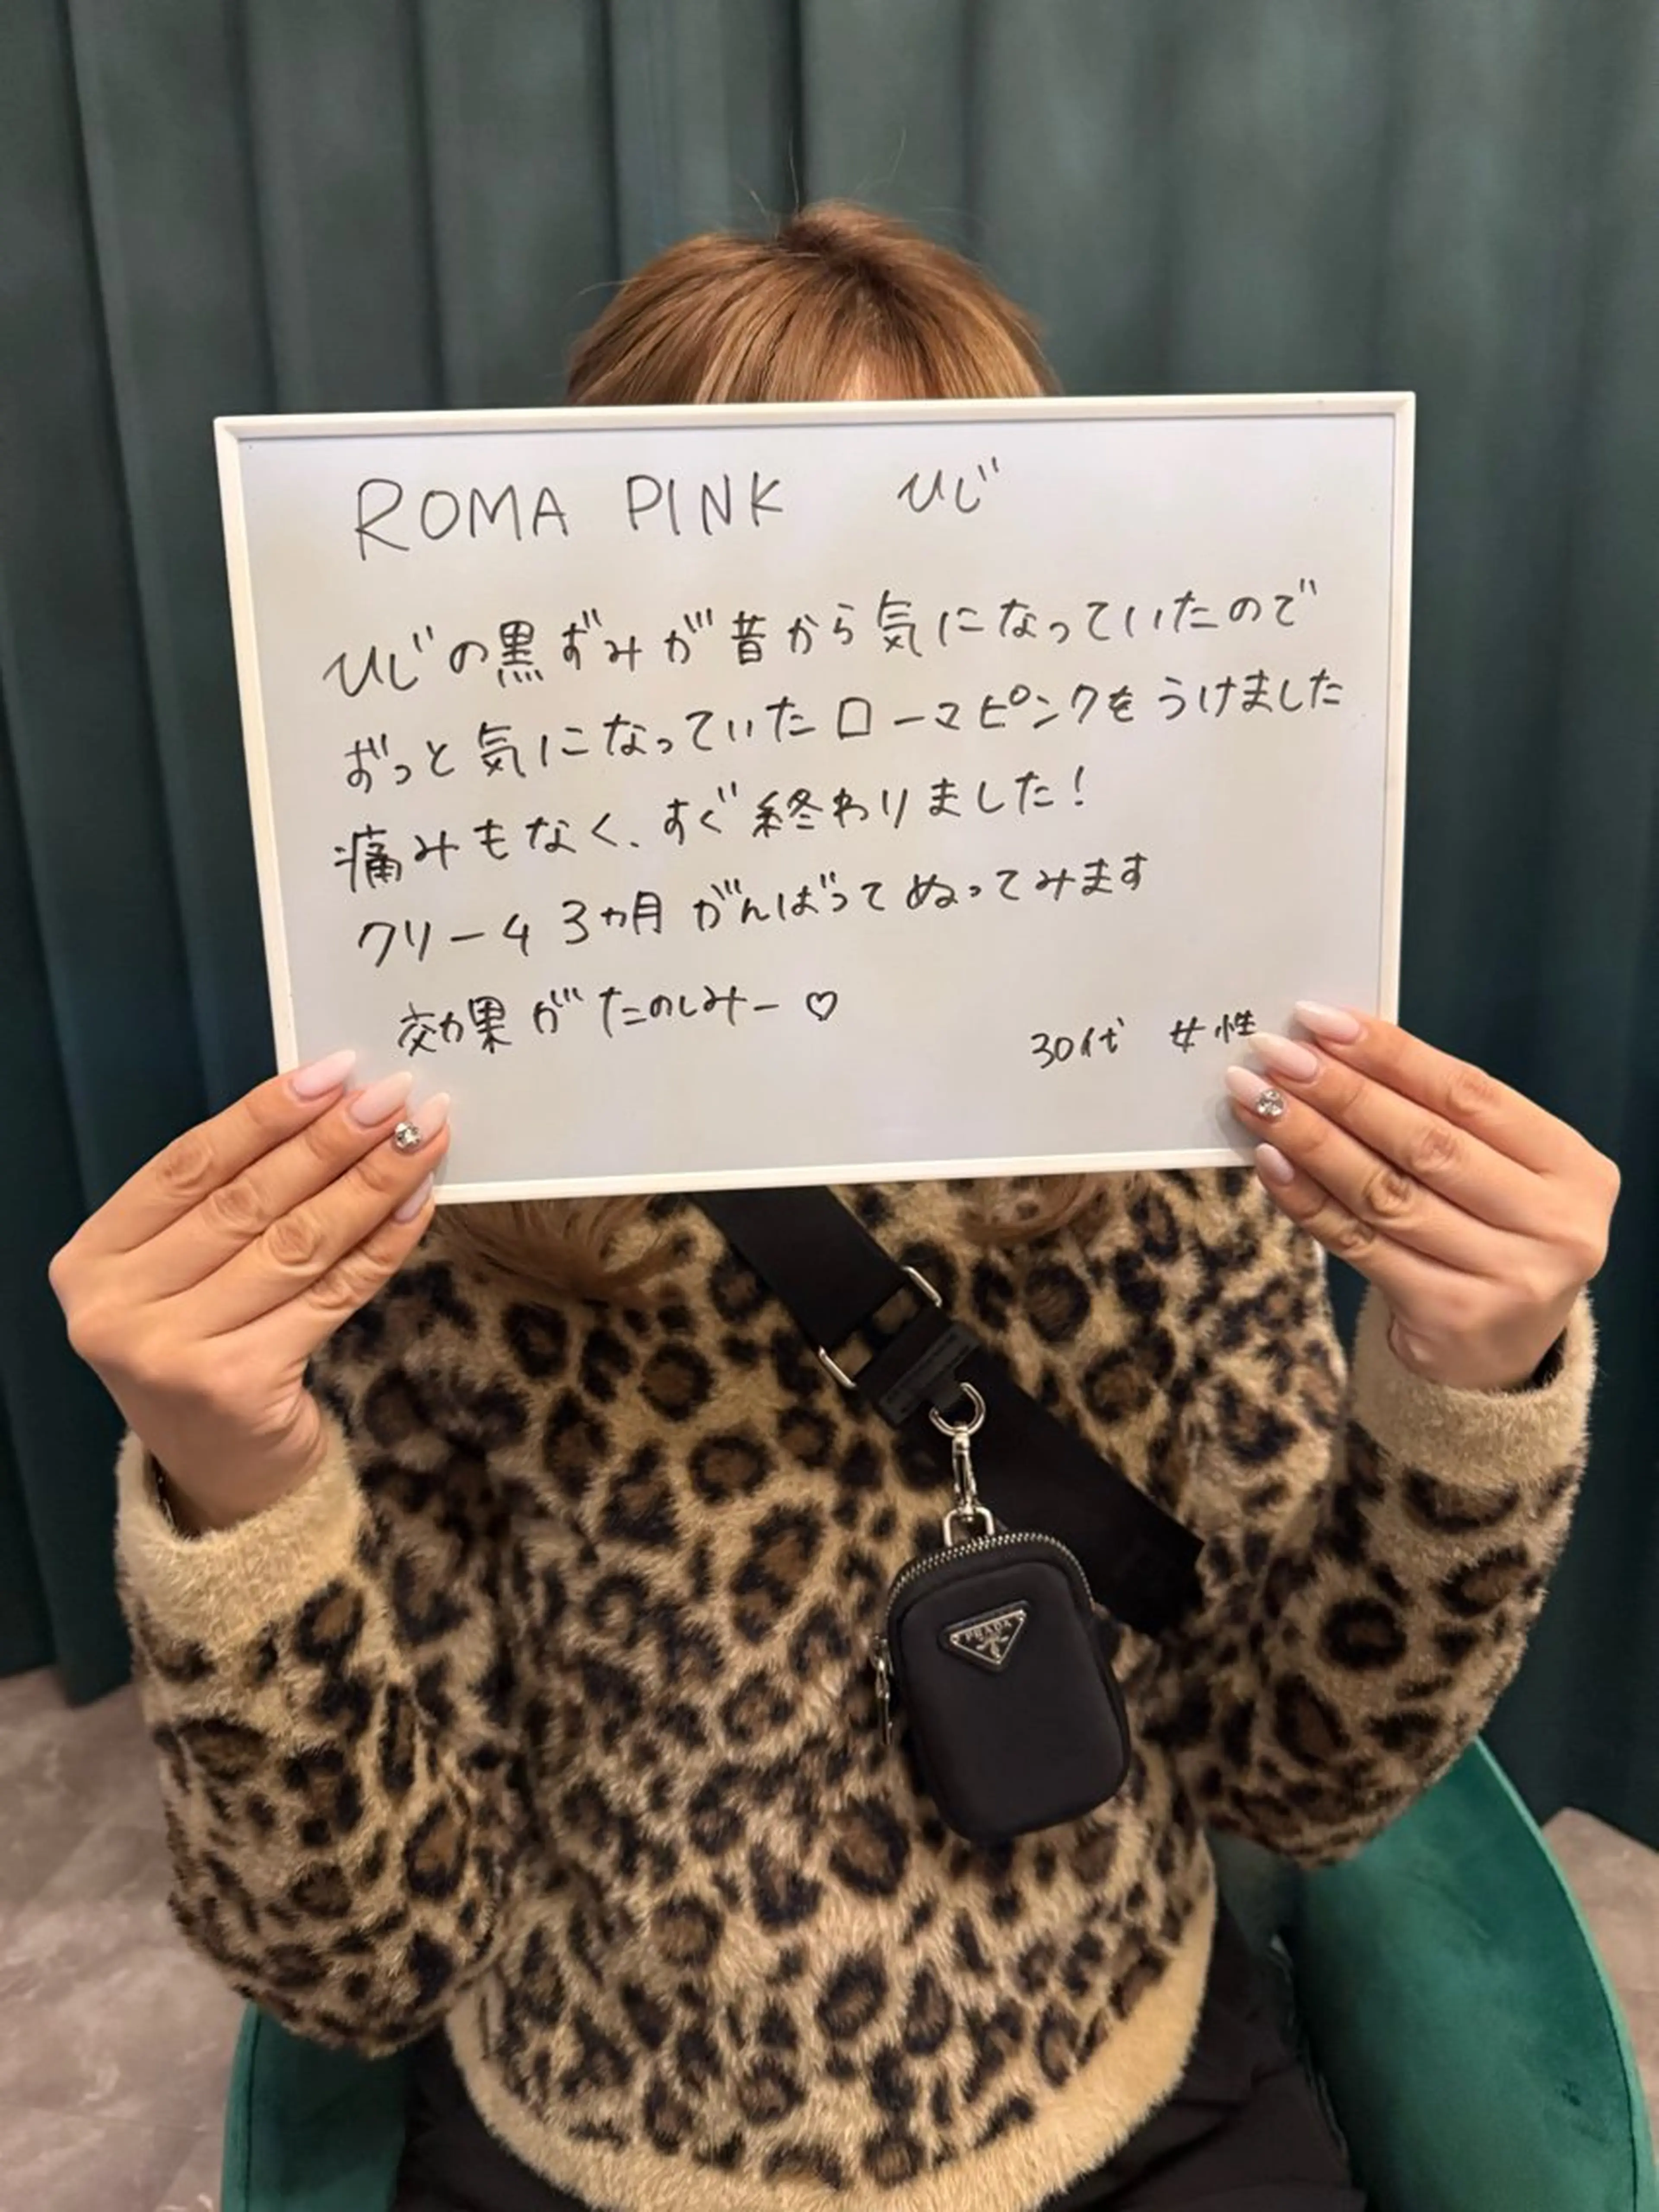 ROMA PINK ひじ
ひじの黒ずみが昔から気になっていたので
ずっと気になっていたローマピンクをうけました
痛みもなく、すぐ終わりました!
クリーム 3ヵ月 がんばってぬってみます
効果がたのしみー♡
30代 女性
PRADA